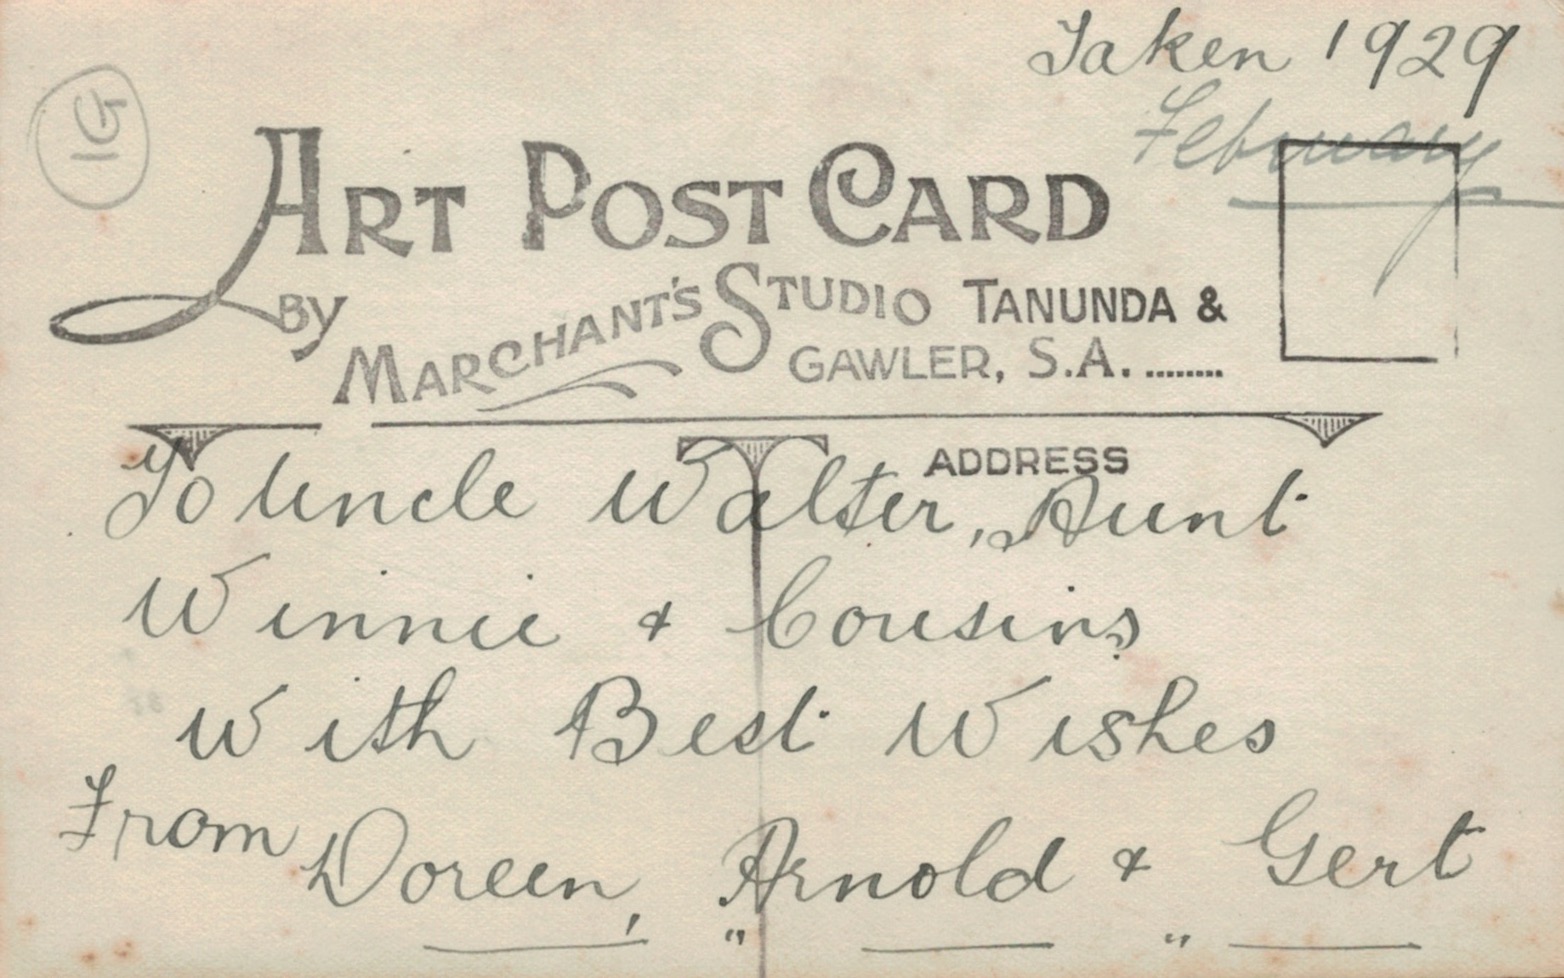 Taken 1929
February
1G
ART POST CARD
BY MARCHANT'S STUDIO TANUNDA &
GAWLER, S.A. ........
ADDRESS
To Uncle Walter, Aunt
Winnie & Cousins
With Best Wishes
From Doreen, Arnold & Gert
" "